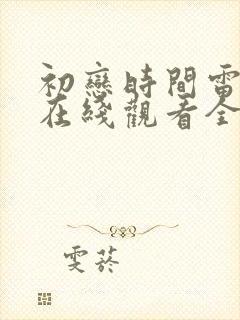 初戀時間電
在綫觀看全
雯菸